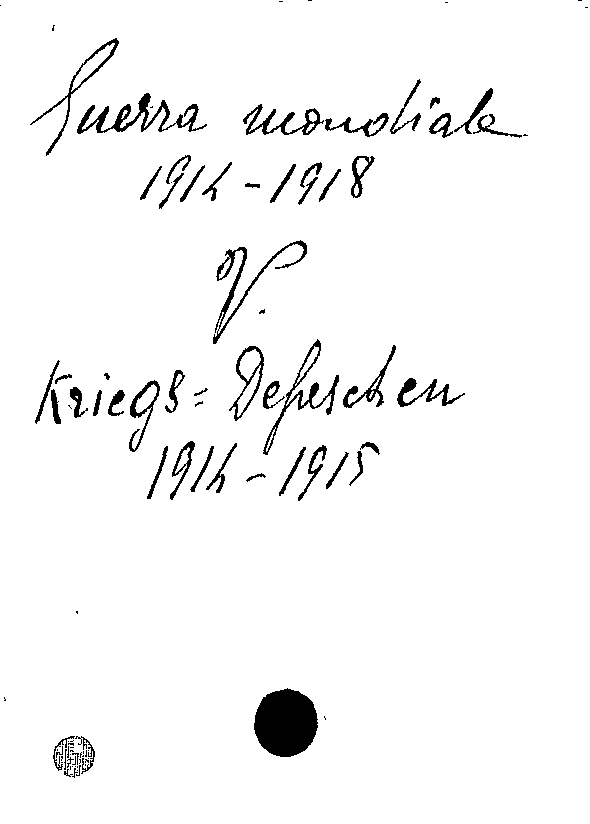 Guerra mondiale
1914-1918
V.
Kriegs=Depeschen
1914-1915